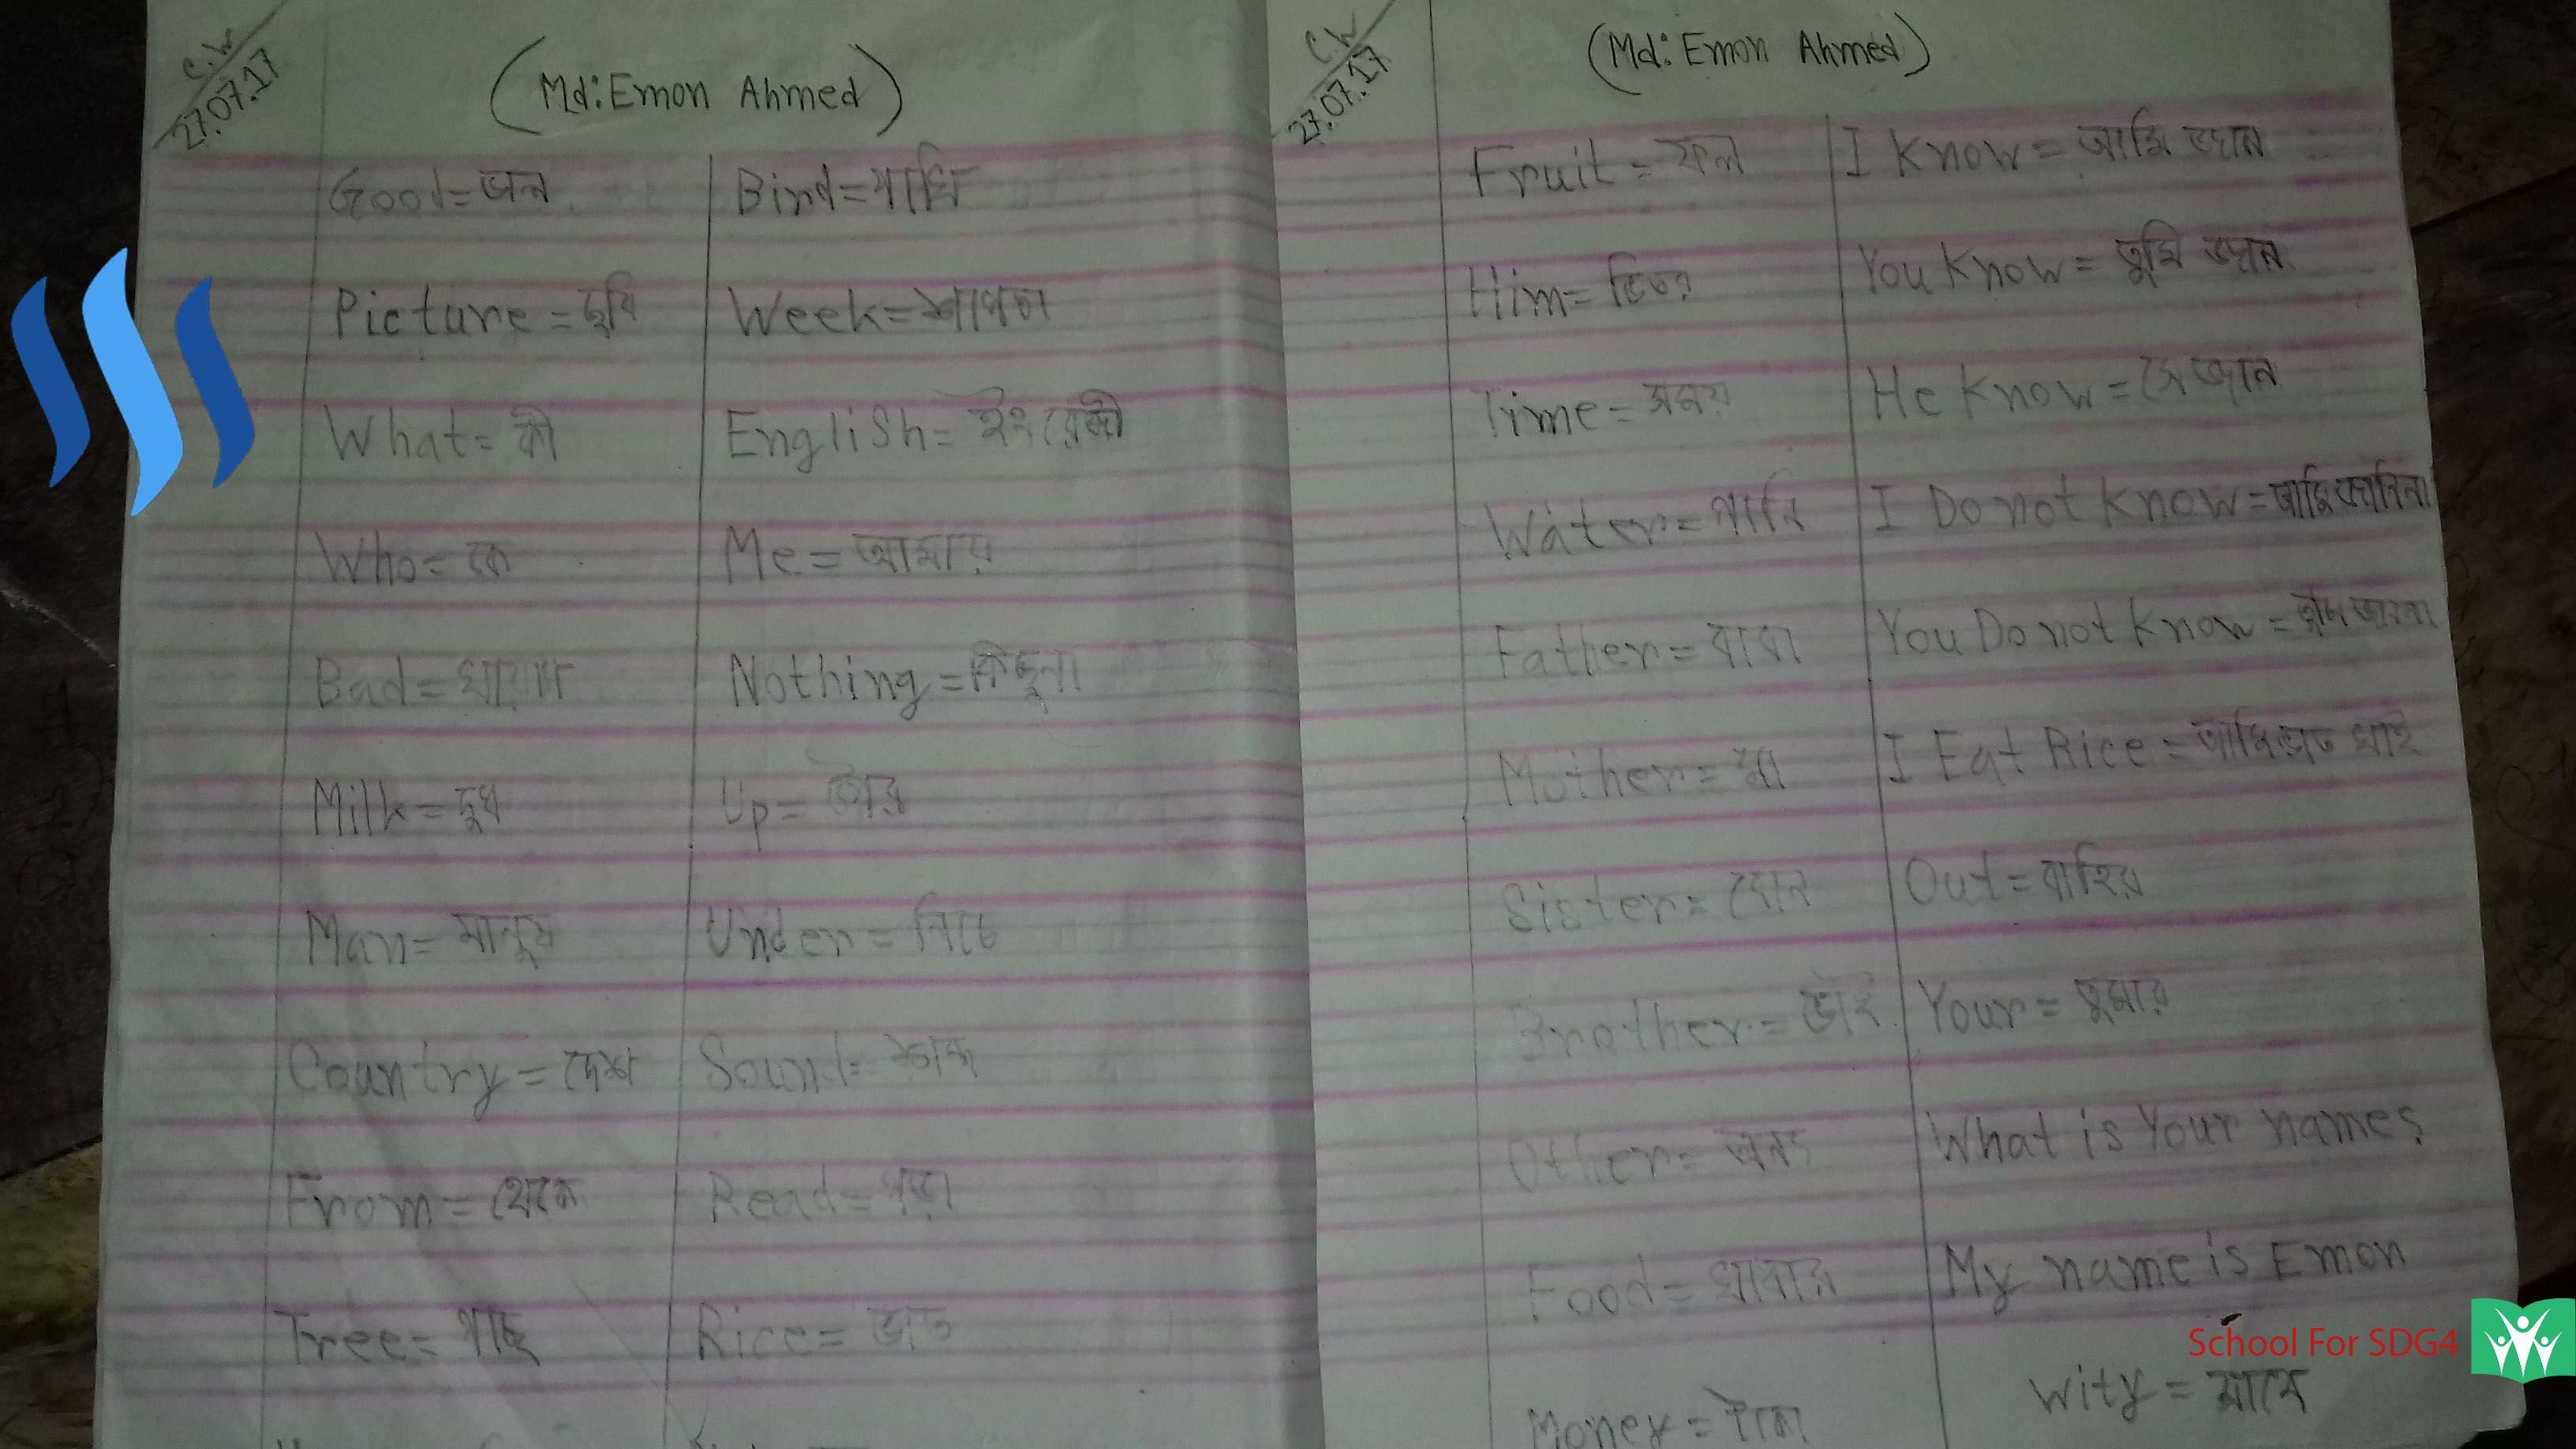 C.W
27.07.17
(Md: Emon Ahmed)
Good=
Picture = ছবি
What= কী
Who= কে
Bad=
Milk= দুধ
Man= মানুষ
Country = দেশ
From= থেকে
Tree= গাছ
Bind=
Week=
English= ইংরেজী
Me = আমায়
Nothing = কিছুনা
Up=
Under = নিচে
Sound=
Read= পড়া
Rice= ভাত
C.W
27.07.17
(Md: Emon Ahmed)
Fruit = ফল
Him=
Time= সময়
Water= পানি
Father= বাবা
Mother= মা
Sister= বোন
Brother= ভাই
Other=
Food= খাবার
Money=
I Know = আমি জান
You Know = তুমি জান
He Know = সে জান
I Do not Know = আমি জানিনা
You Do not Know =
I Eat Rice = আমি ভাত খাই
Out= বাহির
Your= তুমার
What is Your name?
My name is Emon
Wity = সাথে
School For SDG4